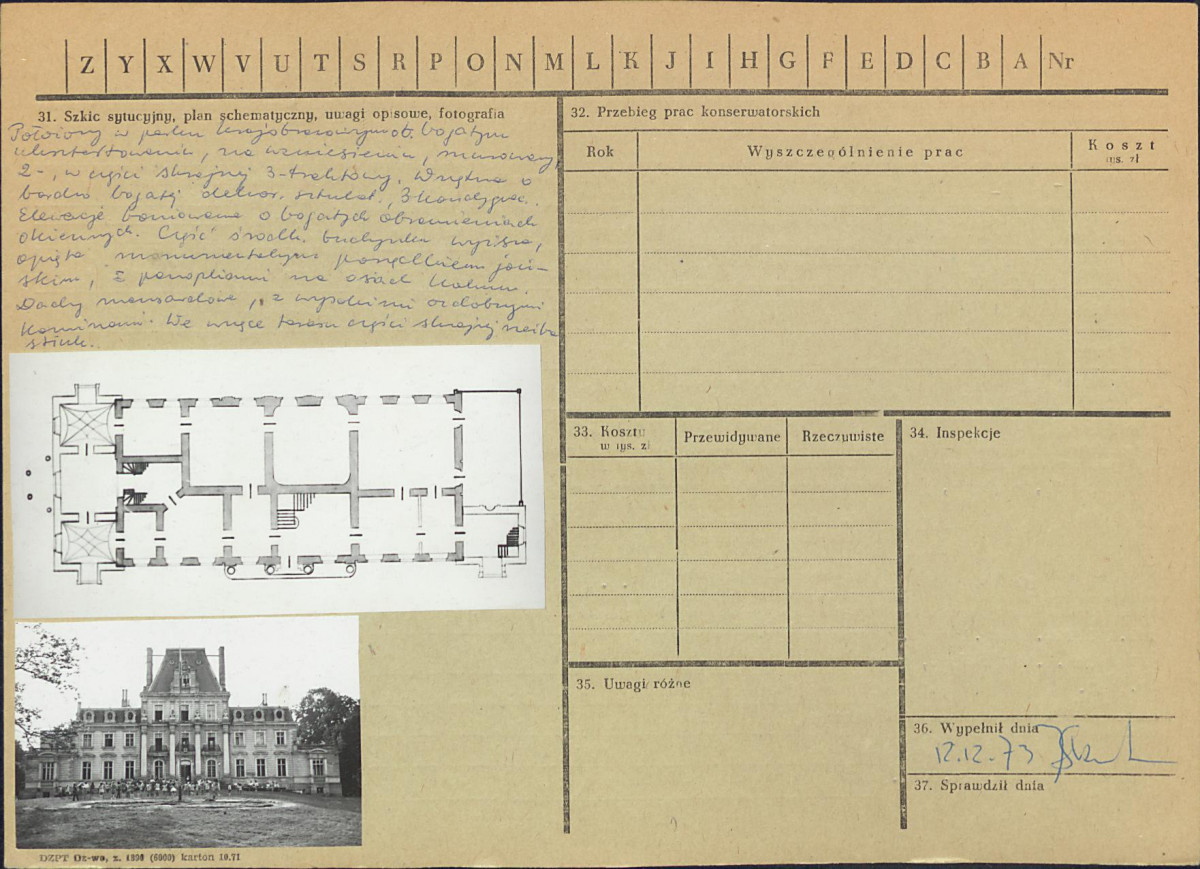 Z Y X W V U T S R P O N M L K J I H G F E D C B A Nr
31. Szkic sytucyjny, plan schematyczny, uwagi opisowe, fotografia
Położony w parku krajobrazowym o b. bogatym
ukształtowaniu, na wzniesieniu, murowany,
2-, w części skrajnej 3-traktowy. Wnętrza o
bardzo bogatej dekor. sztukat., 3 kondygnac.
Elewacje boniowane o bogatych obramieniach
okiennych. Część środk. budynku wyższa,
opięta monumentalnym porządkiem joń-
skim, z panopliami na osiach kolumn.
Dachy mansardowe, z wysokimi ozdobnymi
kominami. We wnęce tarasu części skrajnej rzeźba
stiuk.
32. Przebieg prac konserwatorskich
Rok
Wyszczególnienie prac
Koszt
tys. zł
33. Koszty
w tys. zł
Przewidywane
Rzeczywiste
34. Inspekcje
35. Uwagi różne
36. Wypełnił dnia
12.12.73
37. Sprawdził dnia
DZPT Oz-wo, z. 1390 (6000) karton 10.71